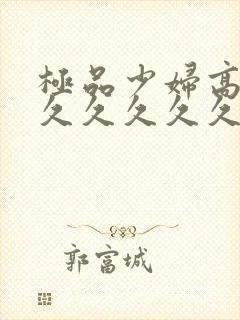 極品少婦高
久久久久久
郭富城